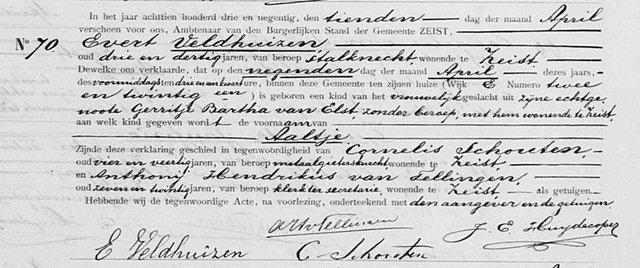 In het jaar achttien honderd drie en negentig, den tienden dag der maand April
verscheen voor ons, Ambtenaar van den Burgerlijken Stand der Gemeente ZEIST,
No 70 Evert Veldhuizen,
oud drie en dertig jaren, van beroep stalknecht, wonende te Zeist
Dewelke ons verklaarde, dat op den negenden dag der maand April dezes jaars,
des voormiddags ten drie en half ure, binnen deze Gemeente ten zijnen huize (Wijk E Numero twee
en twintig een) is geboren een kind van het vrouwelijk geslacht uit zijne echtge-
noote Gerritje Bartha van Elst, zonder beroep, met hem wonende te Zeist,
aan welk kind gegeven wordt de voornaam van
Aaltje
Zijnde deze verklaring geschied in tegenwoordigheid van Cornelis Schouten,
oud vier en veertig jaren, van beroep metaalgietersknecht wonende te Zeist
en Anthonij Hendrikus van Tellingen,
oud zeven en twintig jaren, van beroep klerk ter secretarie, wonende te Zeist als getuigen.
Hebbende wij deze tegenwoordige Acte, na voorlezing, onderteekend met den aangever en de getuigen
J. E. Huydecoper
E Veldhuizen C. Schouten